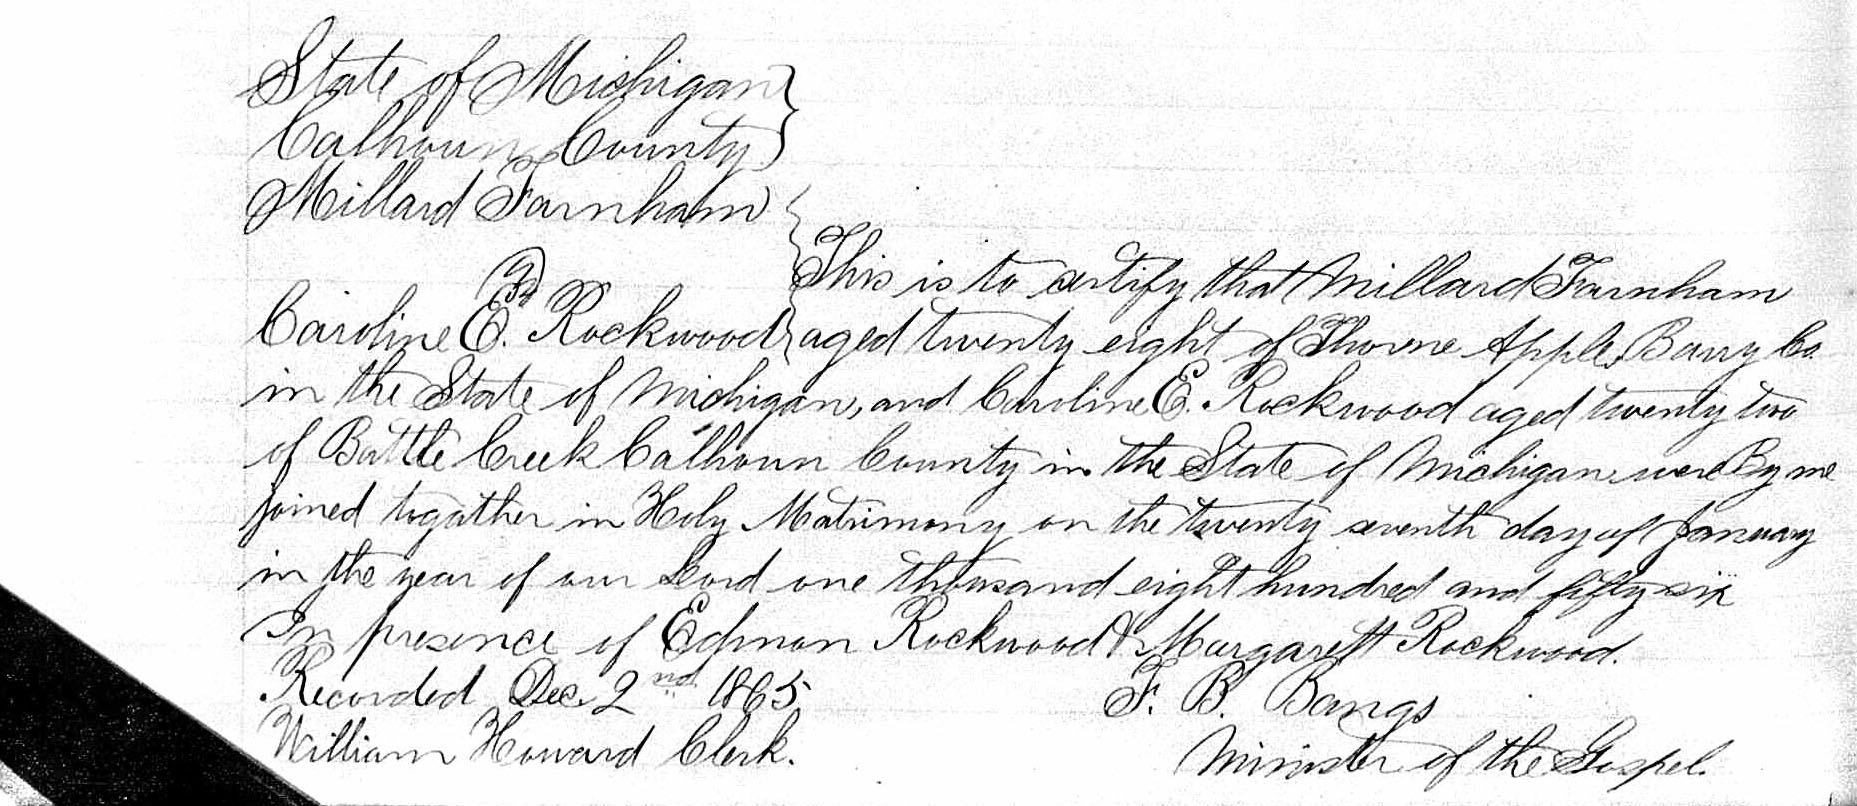 State of Michigan
Calhoun County
Millard Farnham
&
Caroline E. Rockwood
This is to certify that Millard Farnham
aged twenty eight of Thorne Apple, Barry Co.
in the State of Michigan, and Caroline E. Rockwood aged twenty two
of Battle Creek Calhoun County in the State of Michigan were By me
joined together in Holy Matrimony on the twenty seventh day of January
in the year of our Lord one thousand eight hundred and fifty six
In presence of Edmon Rockwood & Margarett Rockwood.
Recorded Dec. 2nd 1865
F. B. Bangs
William Howard Clerk.
Minister of the Gospel.